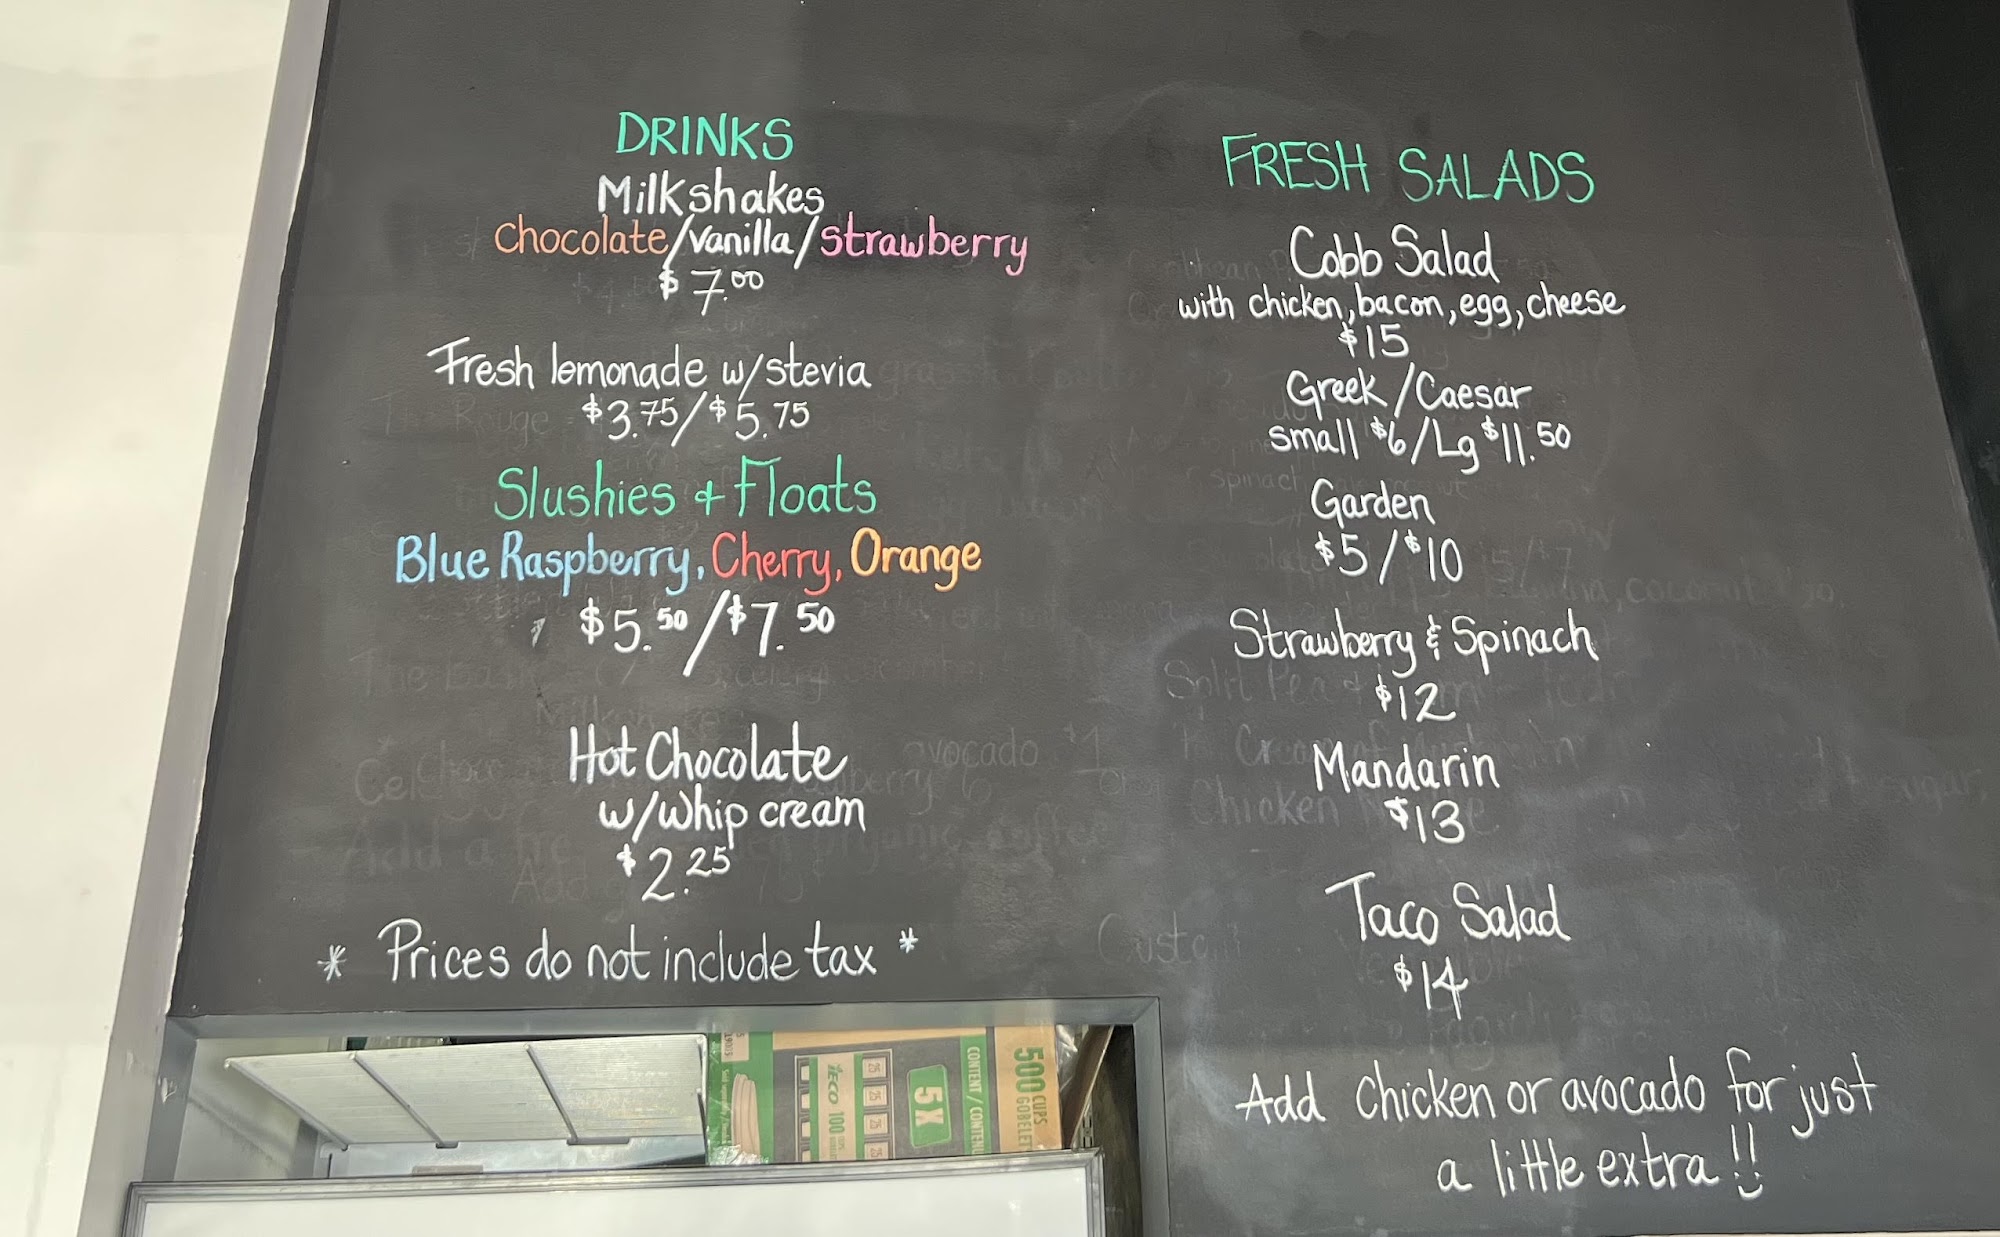 DRINKS
Milkshakes
chocolate/vanilla/strawberry
$7.00
Fresh lemonade w/stevia
$3.75/$5.75
Slushies + Floats
Blue Raspberry, Cherry, Orange
$5.50/$7.50
Hot Chocolate
w/whip cream
$2.25
* Prices do not include tax *
FRESH SALADS
Cobb Salad
with chicken, bacon, egg, cheese
$15
Greek/Caesar
small $6/Lg $11.50
Garden
$5/$10
Strawberry & Spinach
$12
Mandarin
$13
Taco Salad
$14
Add chicken or avocado for just
a little extra!!
500 CUPS
GOBELET
CONTENT / CONTEN
5X
ECO 100
25
25
25
25